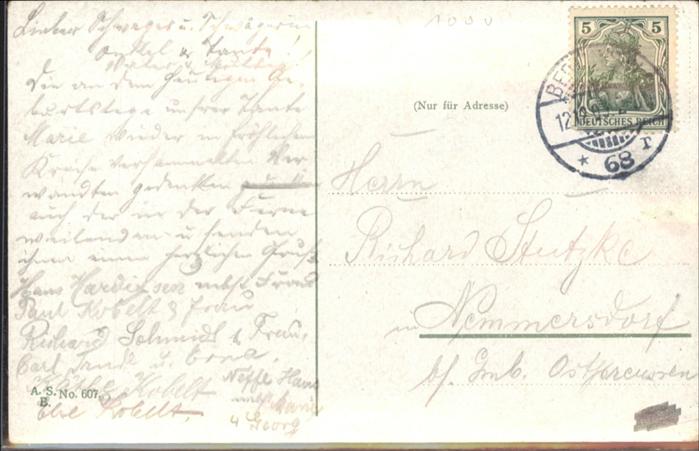 Lieber Schwager u. Schwägerin
Onkel & Tante!
Vater u. Mutter!
Die an dem heutigen Ge-
burtstage unsrer Tante
Marie wieder im fröhlichen
Kreise versammelten Ver-
wandten gedenken
auch der in der Ferne
weilenden u. senden
ihnen einen herzlichen Gruß
Hans nebst Frau
Paul Kobelt & Frau
Richard Schmidt & Frau,
Carl u. Erna.
Kobelt
Else Kobelt.
Neffe Hans
nebst
u Georg
A. S. No. 607
B.
1000
(Nur für Adresse)
5 5
DEUTSCHES REICH
BER
12
* 68 r
Herrn
Richard Stutzke
in Nemmersdorf
bz. Gmb. Ostpreussen